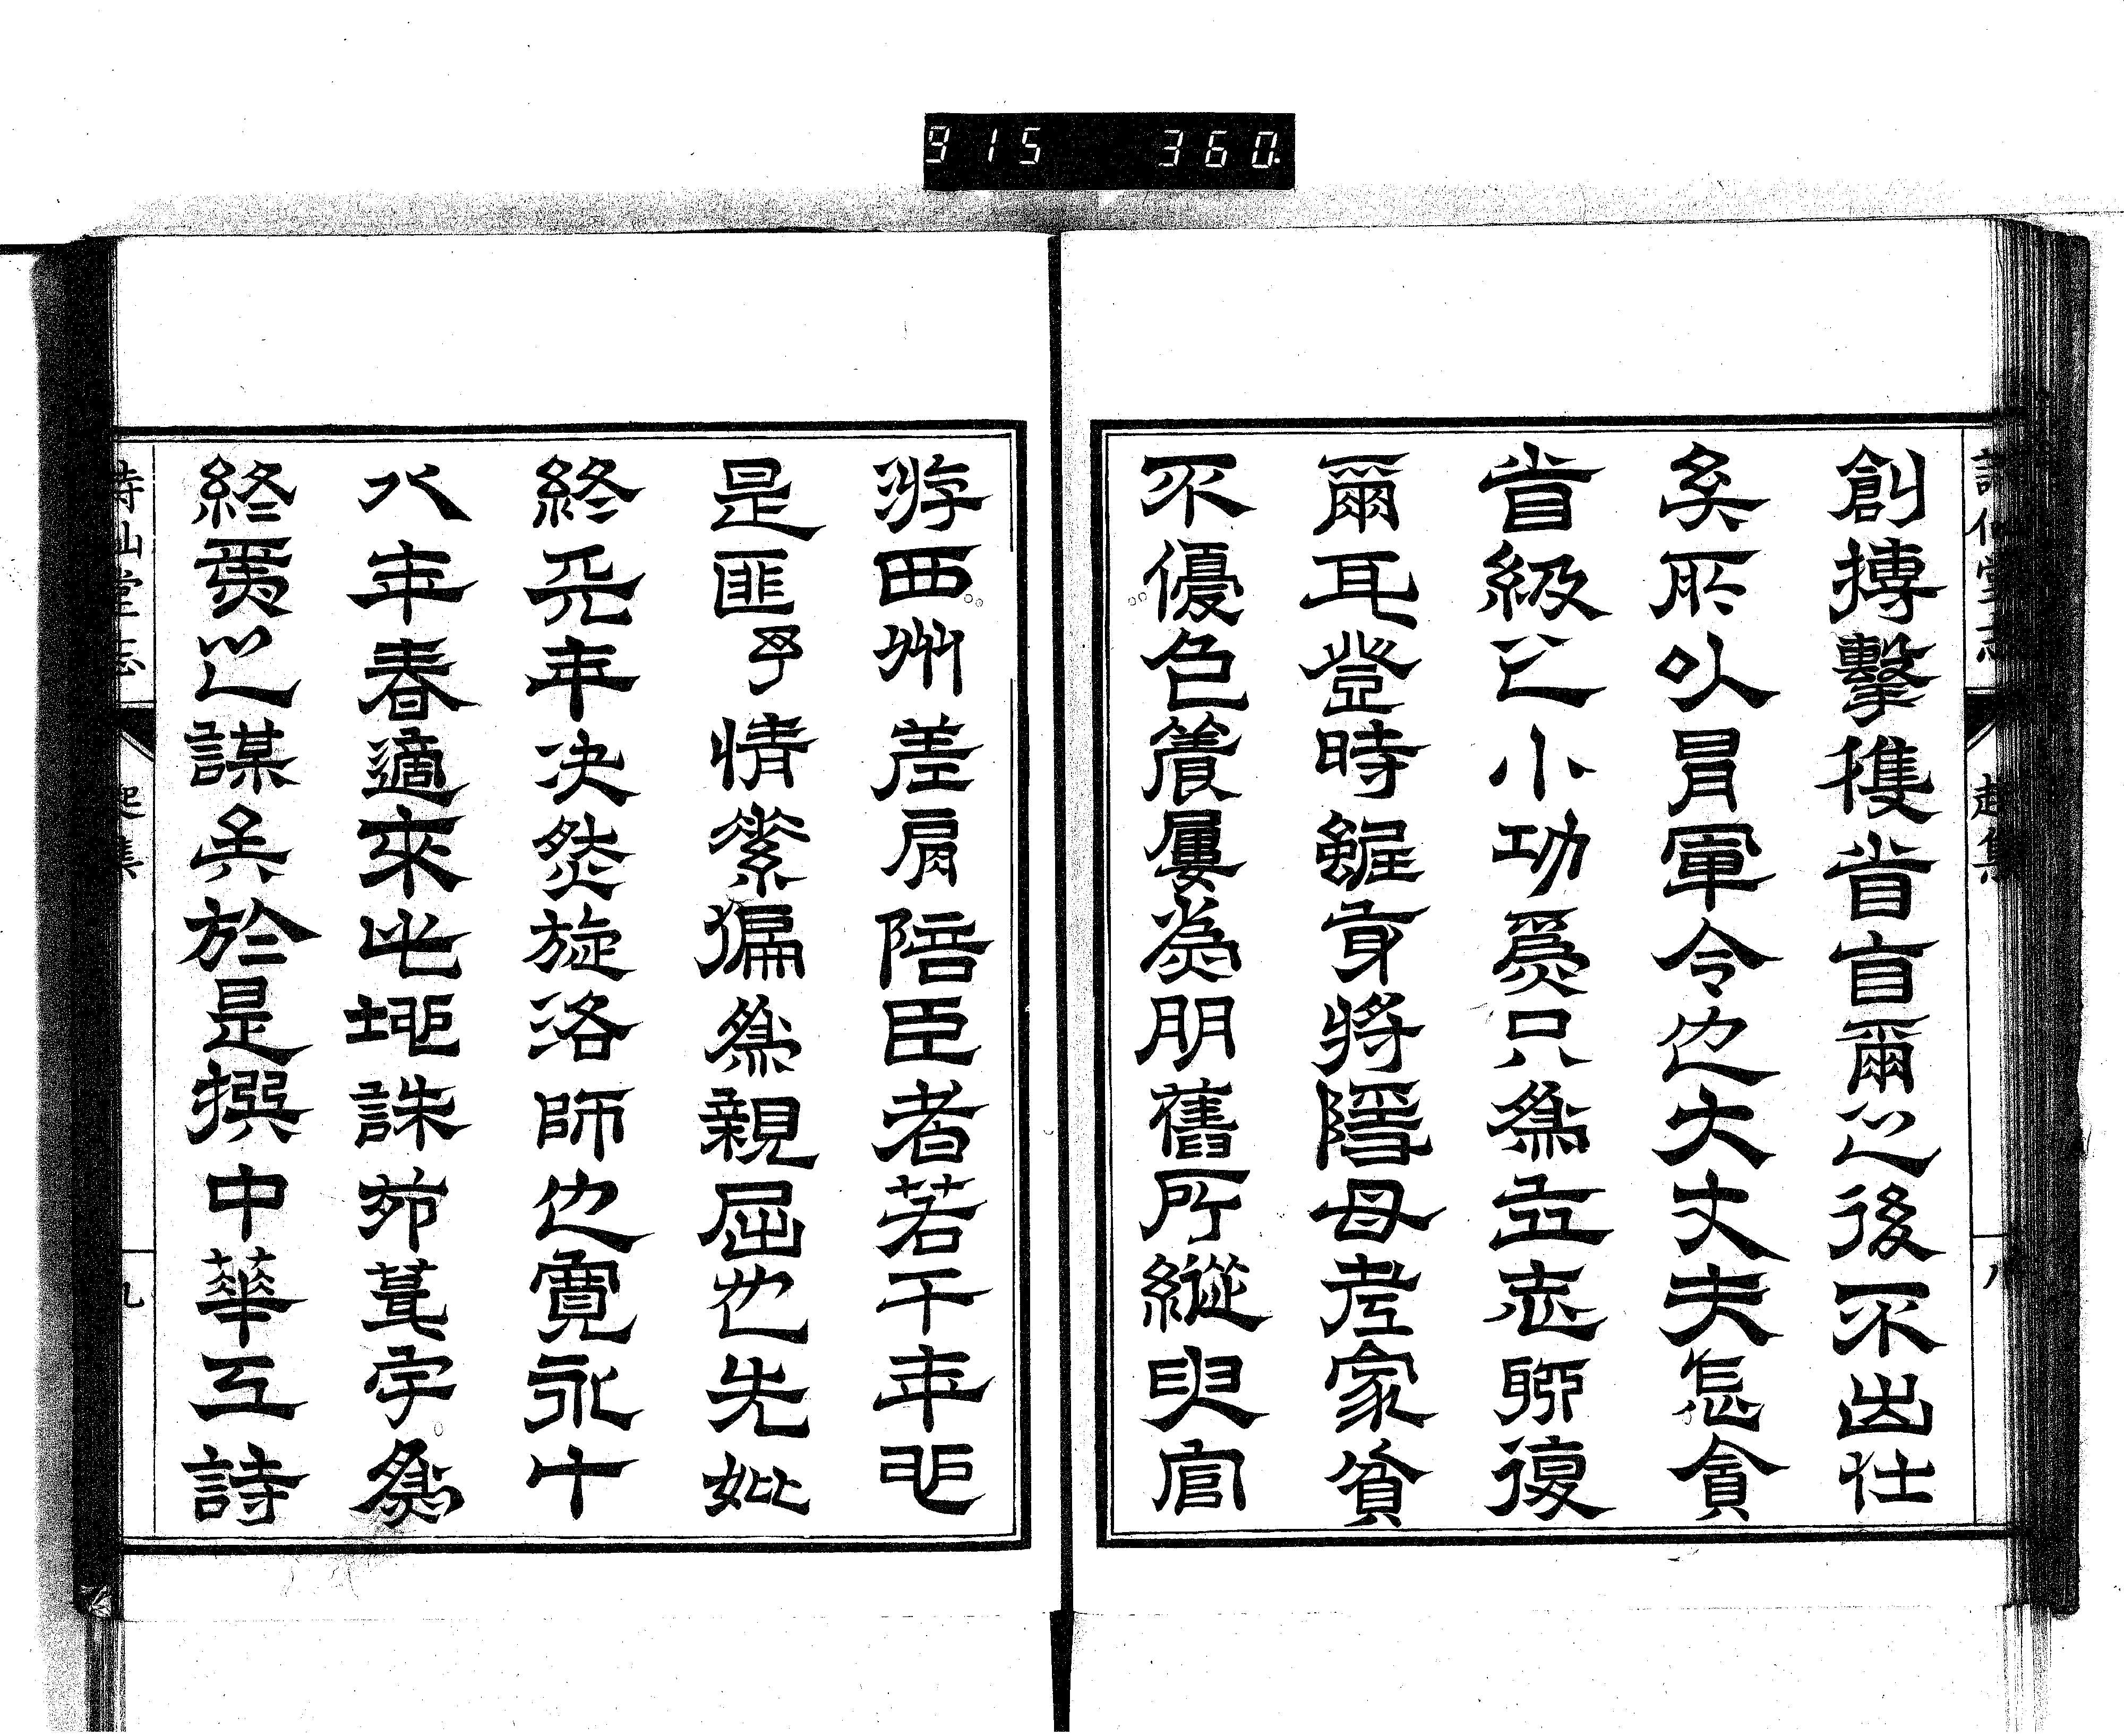 915 360.
創搏擊獲首盲爾之後不出仕
矣所以冒軍令也大丈夫怎貪
首級之小功焉只為立志聊復
爾耳登時雖身將隱母老家貧
不優色養屢為朋舊所縱臾宦
游西州差肩陪臣者若干年非
是匪予情素偏為親屈也先妣
終元年決然旋洛師也寬永十
八年春適來此地誅茆葺宇為
終焉之謀矣於是撰中華工詩
詩仙堂志
起集
八
詩仙堂志
起集
九